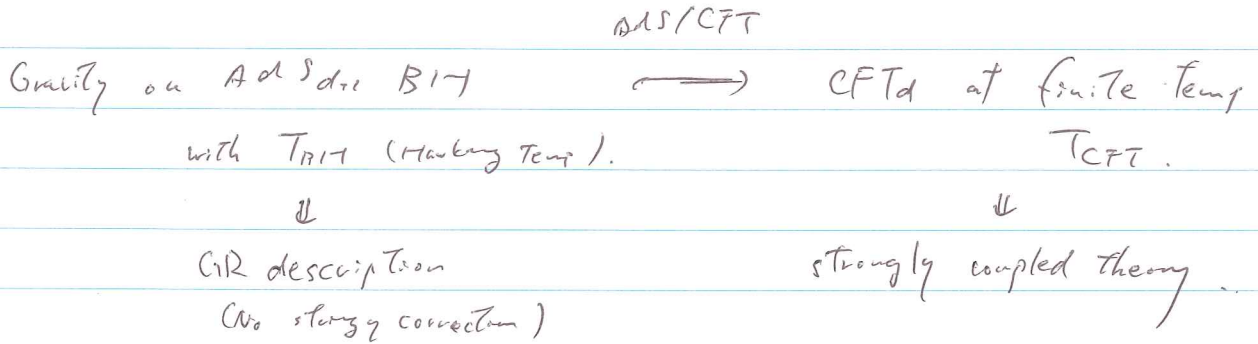 AdS/CFT
Gravity on AdSd+1 BH ⟶ CFTd at finite Temp
with TBH (Hawking Temp). TCFT.
⇓ ⇓
GR description strongly coupled theory..
(No stringy correction)